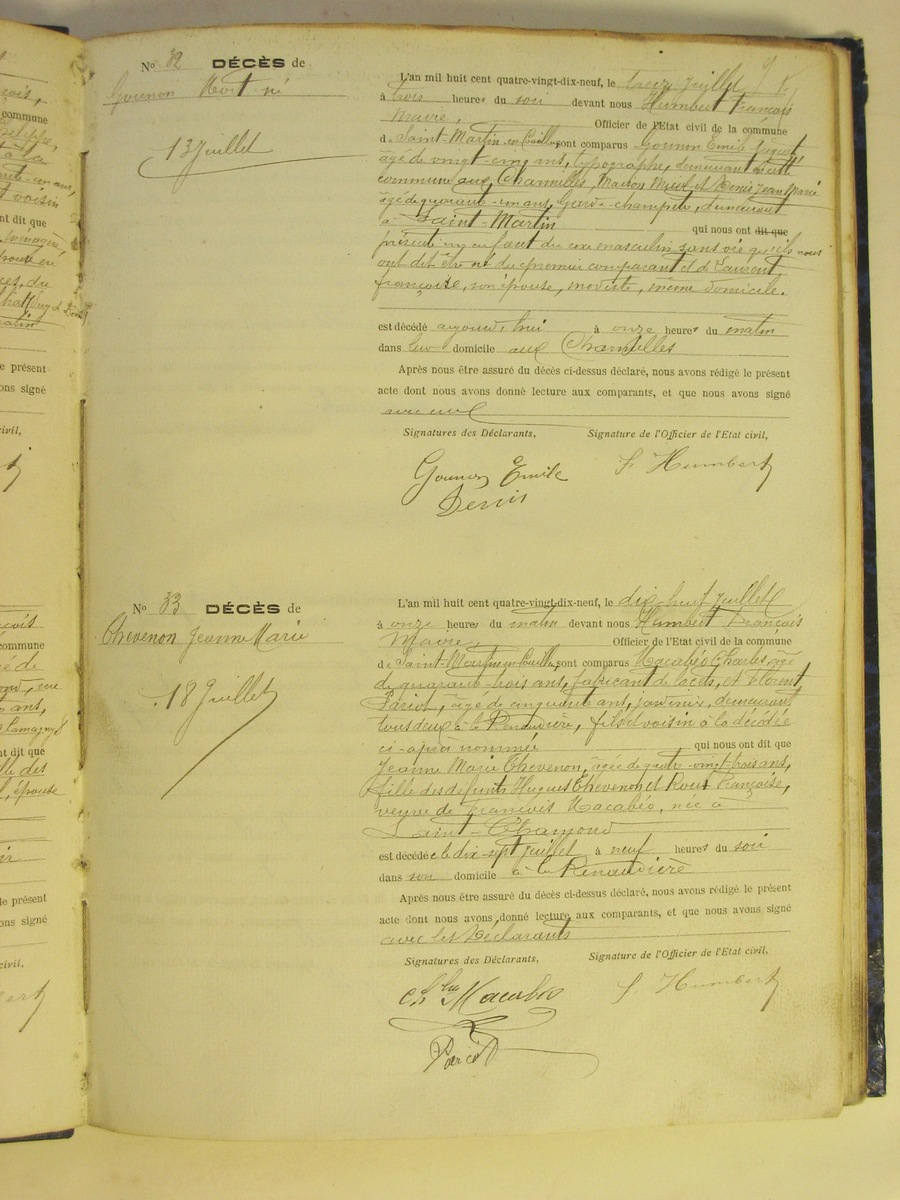 No 32 DÉCÈS de
Gounon Mort-né
13 Juillet
L'an mil huit cent quatre-vingt-dix-neuf, le treize Juillet
à trois heures du soir devant nous Humbert François
Maire, Officier de l'Etat civil de la commune
de Saint-Martin-en-Coailleux sont comparus Gounon Emile Auguste
âgé de vingt-cinq ans, typographe, demeurant en cette
commune aux Charmilles, Maison et Denis Jean Marie
âgé de quarante-un ans, Garde-champêtre, demeurant
à Saint-Martin qui nous ont dit que
présenté un enfant du sexe masculin sans vie qu'ils nous
ont dit être né du premier comparant et de Laurent
françoise, son épouse, modiste, même domicile.
est décédé aujourd'hui à onze heures du matin
dans leur domicile aux Charmilles
Après nous être assuré du décès ci-dessus déclaré, nous avons rédigé le présent
acte dont nous avons donné lecture aux comparants, et que nous avons signé
avec eux
Signatures des Déclarants, Signature de l'Officier de l'Etat civil,
Gounon Emile F Humbert
Denis
No 33 DÉCÈS de
Thevenon Jeanne Marie
18 Juillet
L'an mil huit cent quatre-vingt-dix-neuf, le dix huit Juillet
à onze heures du matin devant nous Humbert François
Maire, Officier de l'Etat civil de la commune
de Saint-Martin en Coailleux sont comparus Macabéo Charles âgé
de quarante-trois ans, fabricant de lacets, et Florent
Pariot, âgé de cinquante ans, jardinier, demeurant
tous deux à la Renaudière, fils et voisin à la décédée
ci-après nommée qui nous ont dit que
Jeanne Marie Thevenon, âgée de quatre-vingt-trois ans,
fille des defunts Hugues Thevenon et Roux Françoise,
veuve de François Macabéo, née à
Saint-Chamond
est décédée le dix-sept juillet à neuf heures du soir
dans son domicile à la Renaudière
Après nous être assuré du décès ci-dessus déclaré, nous avons rédigé le présent
acte dont nous avons donné lecture aux comparants, et que nous avons signé
avec les Déclarants
Signatures des Déclarants, Signature de l'Officier de l'Etat civil,
Ch les Macabéo F Humbert
Pariot